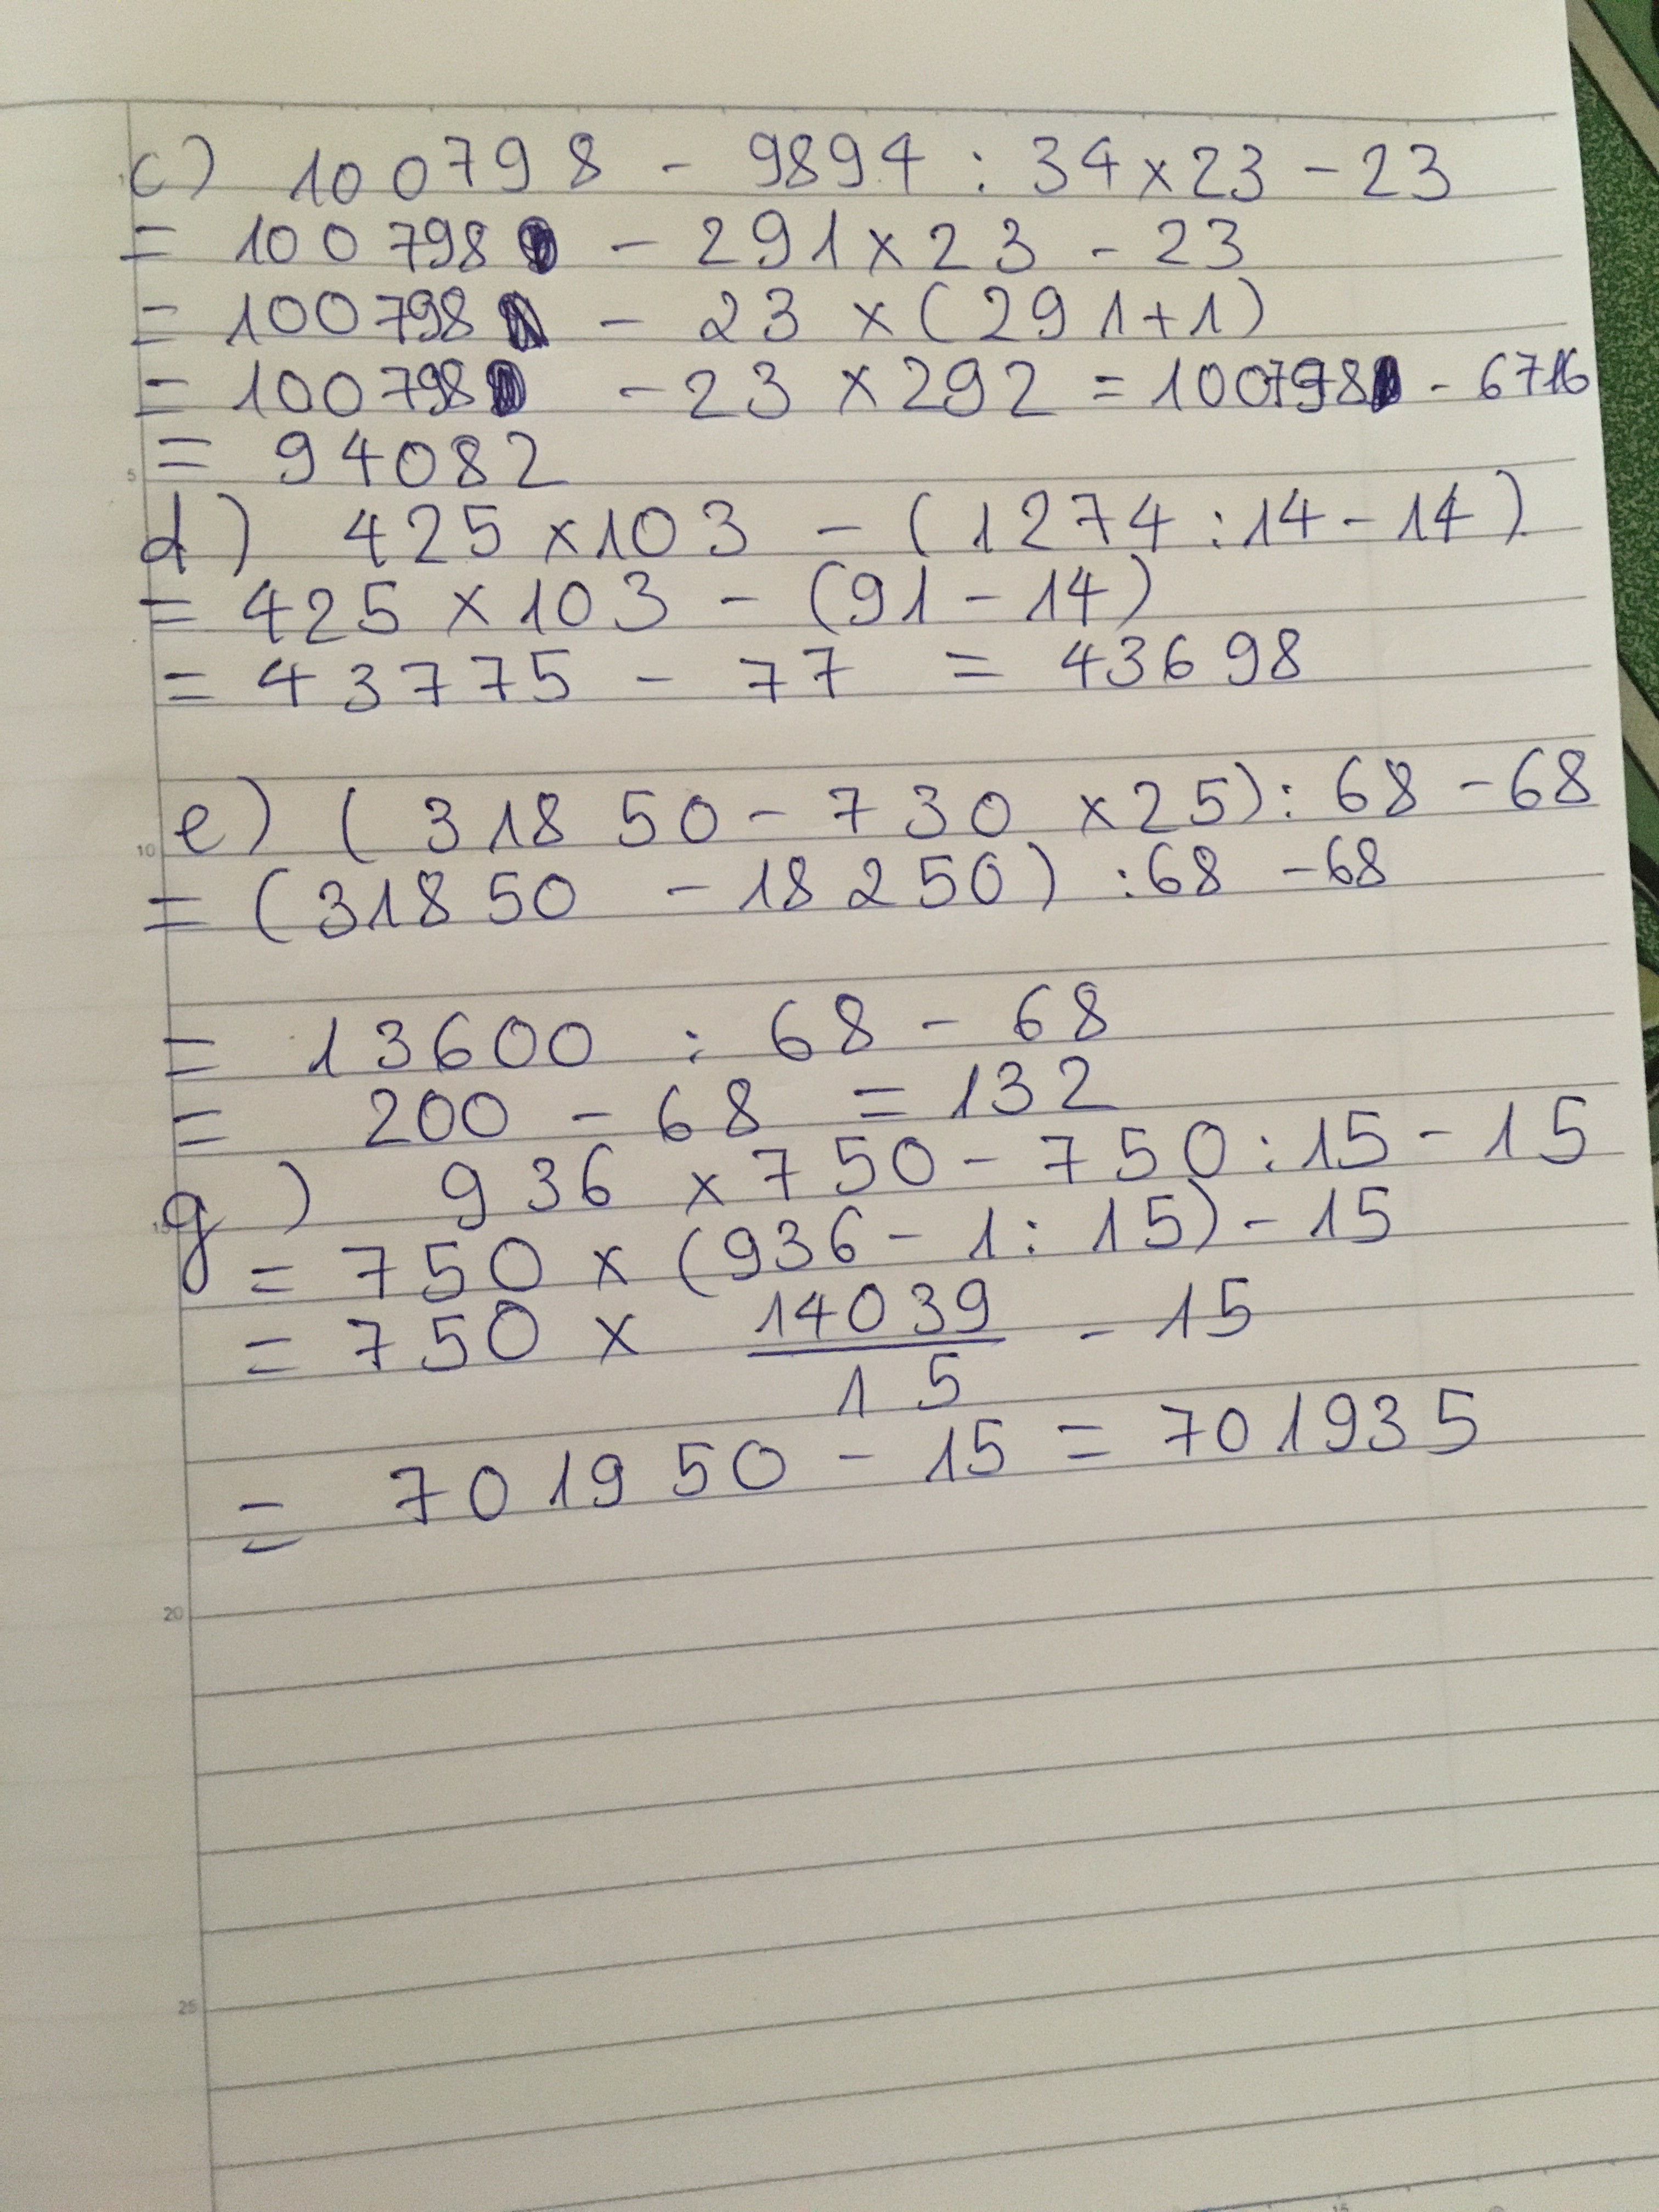 c) 100798 - 9894 : 34 x 23 - 23
= 100798 - 291 x 23 - 23
= 100798 - 23 x (291+1)
= 100798 - 23 x 292 = 100798 - 6716
= 94082
d) 425 x 103 - (1274 : 14 - 14)
= 425 x 103 - (91 - 14)
= 43775 - 77 = 43698
e) (31850 - 730 x 25) : 68 - 68
= (31850 - 18250) : 68 - 68
= 13600 : 68 - 68
= 200 - 68 = 132
g) 936 x 750 - 750 : 15 - 15
= 750 x (936 - 1 : 15) - 15
= 750 x 14039/15 - 15
= 701950 - 15 = 701935